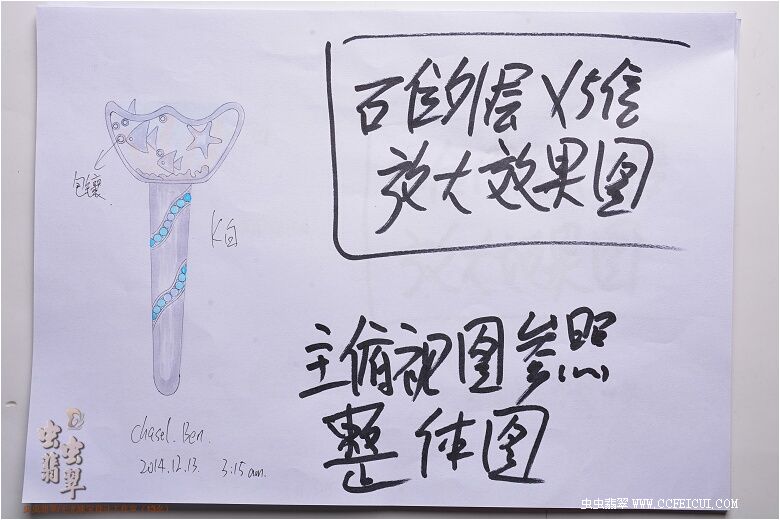 放大效果图
包镶
K白
主俯视图参照
整体图
chasel.Ben.
2014.12.13. 3:15am.
虫虫翡翠
虫虫翡翠 WWW.CCFEICUI.COM